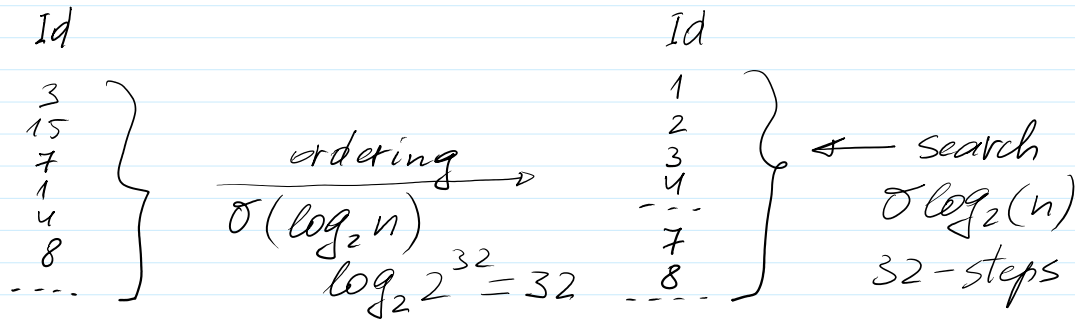 Id
3
15
7
1
4
8
----
ordering
O(log₂ n)
log₂ 2³² = 32
Id
1
2
3
4
---
7
8
----
search
O log₂(n)
32-steps